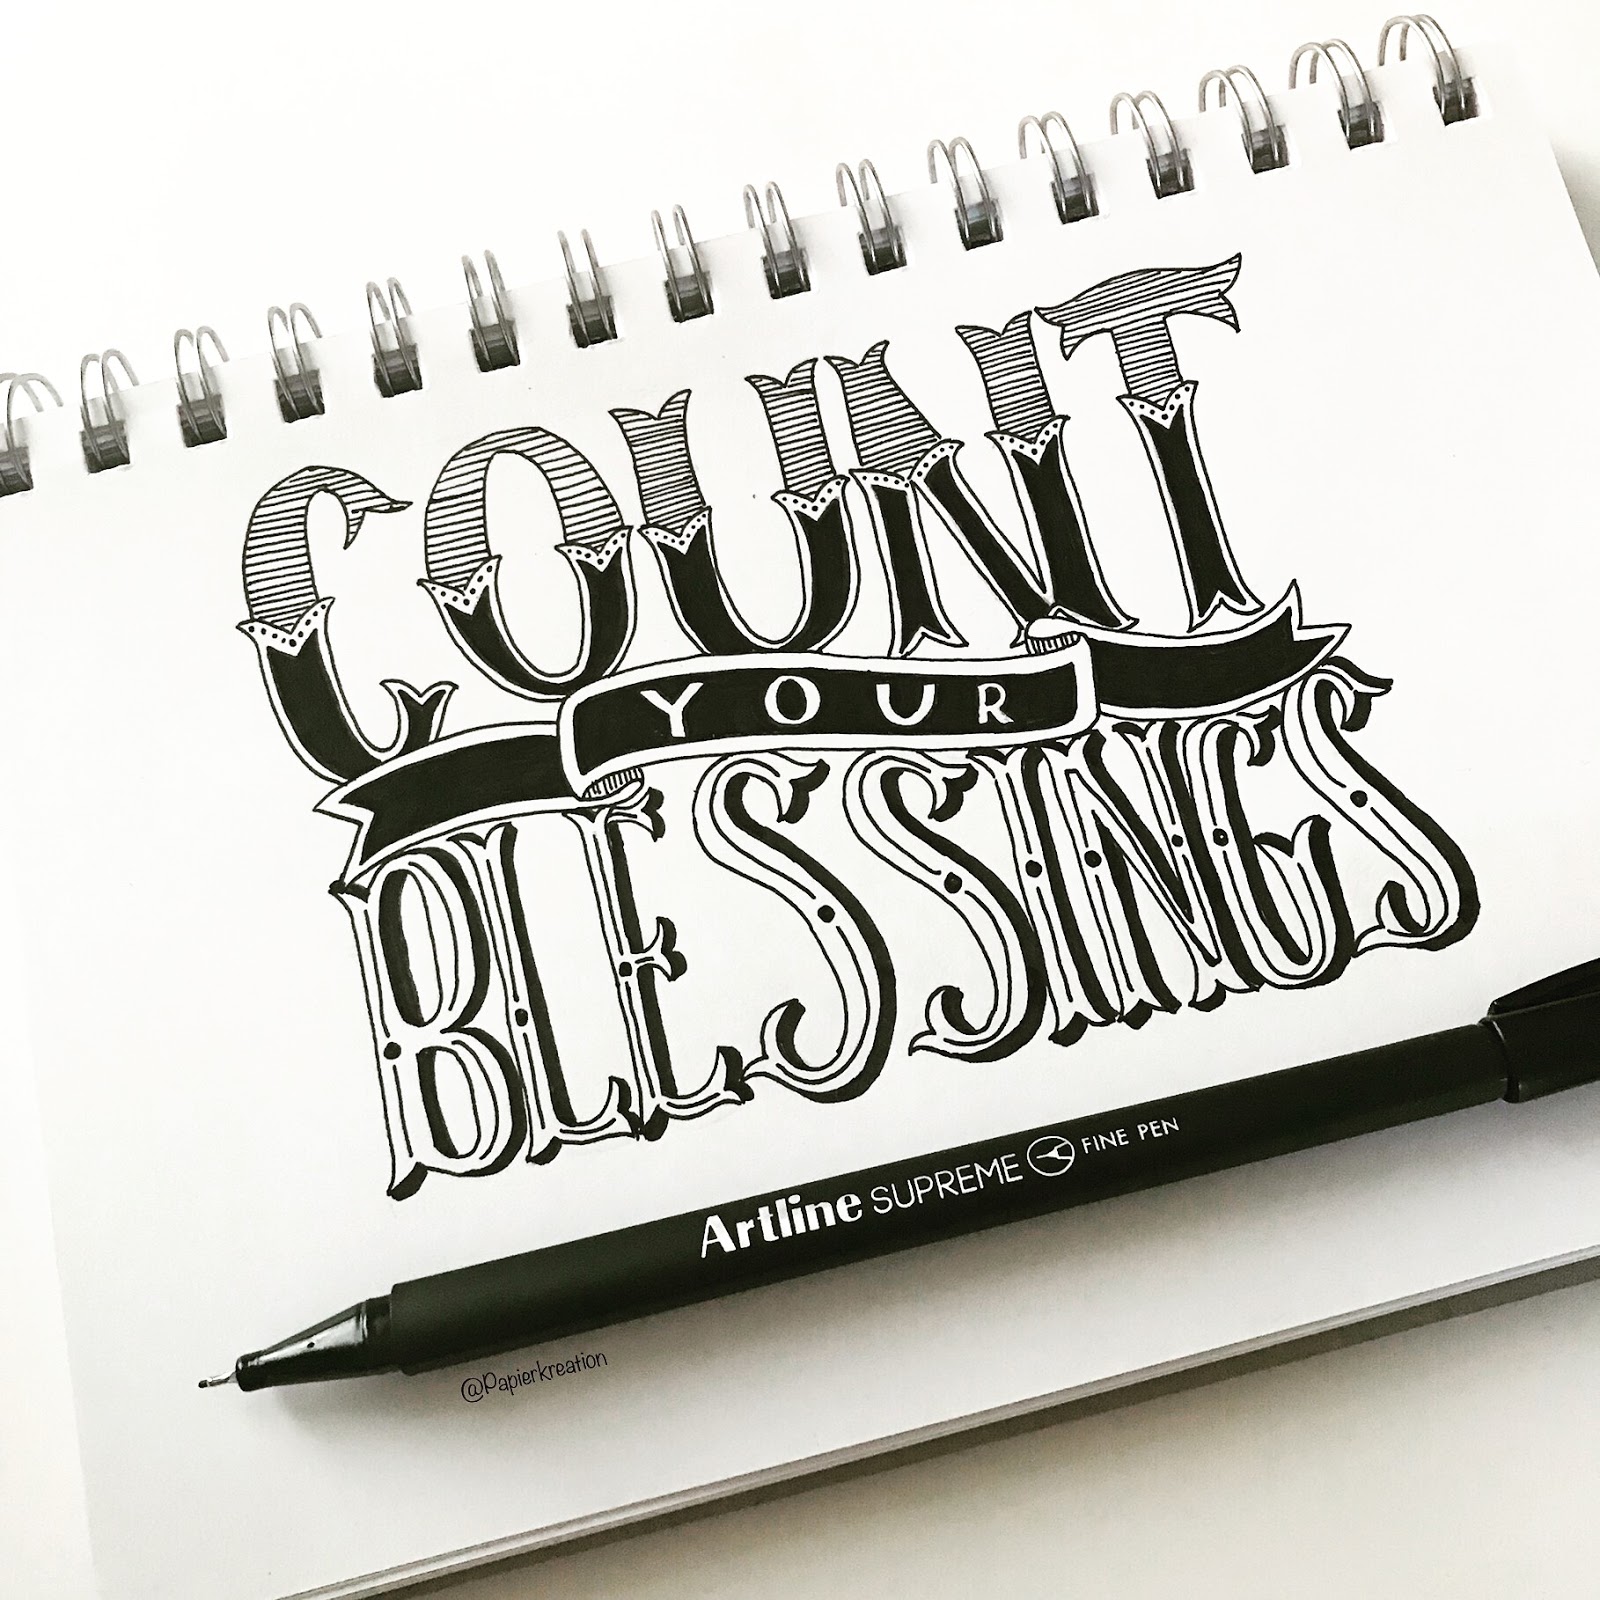 COUNT
YOUR
BLESSINGS
Artline SUPREME FINE PEN
@Papierkreation